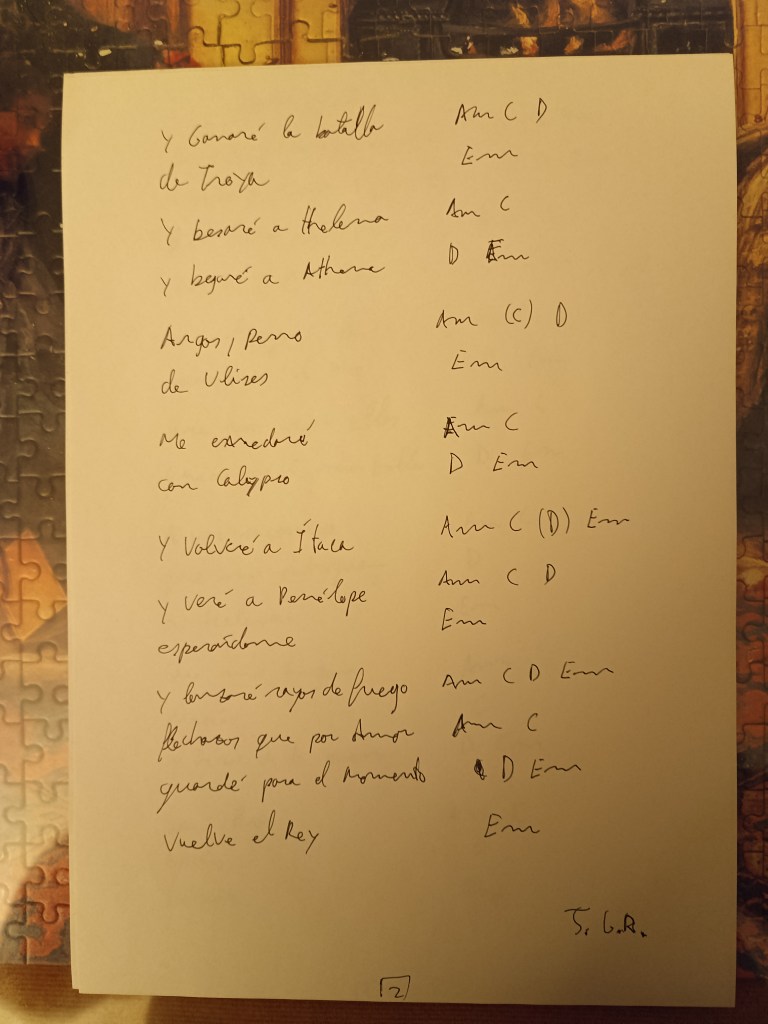 Y Ganaré la batalla Am C D
de Troya Em
Y besaré a Hhelena Am C
Y a Athena D Em
Argos, perro Am (C) D
de Ulises Em
Me enredaré Am C
con Calypso D Em
Y Volveré a Ítaca Am C (D) Em
Y veré a Penélope Am C D
esperándome Em
Y lanzaré rayos de fuego Am C D Em
flechazos que por Amor Am C
guardé para el momento D Em
Vuelve el Rey Em
J. G.R.
2